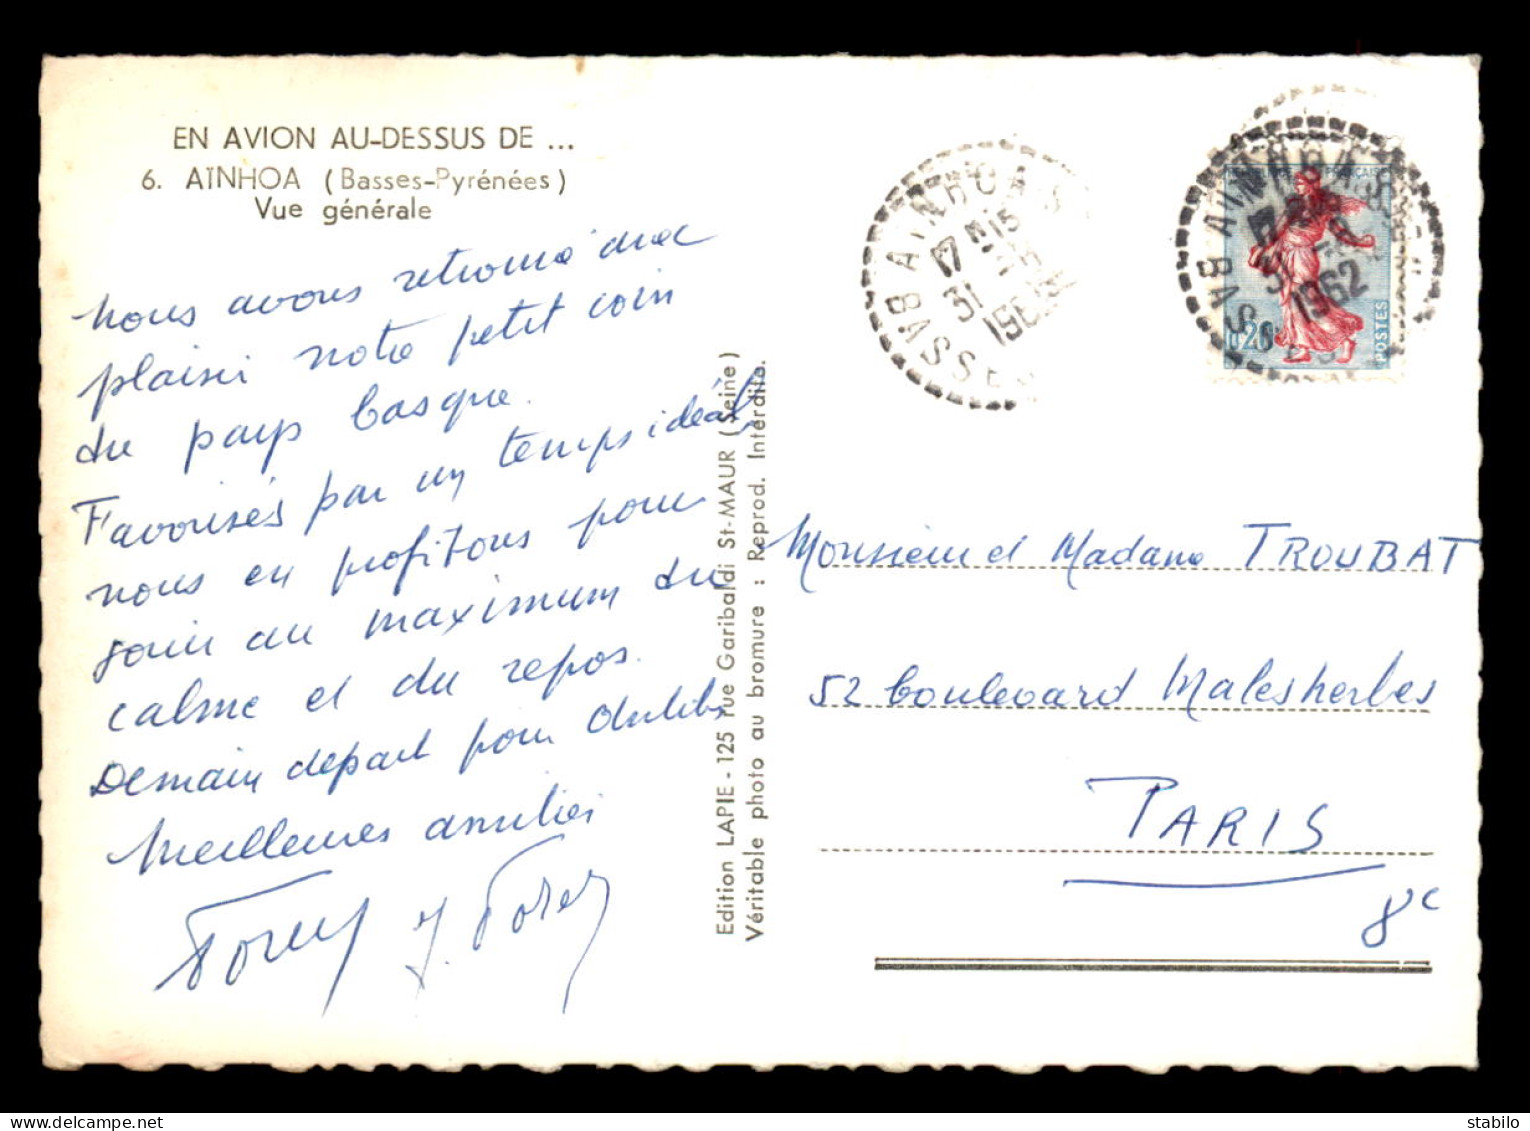 EN AVION AU-DESSUS DE ...
6. AÏNHOA (Basses-Pyrénées)
Vue générale
Nous avons retrouvé avec
plaisir notre petit coin
du pays basque.
Favorisés par un temps idéal
nous en profitons pour
jouir au maximum du
calme et du repos.
Demain départ pour
Meilleures amitiés
Edition LAPIE - 125 rue Garibaldi St-MAUR (Seine)
Véritable photo au bromure : Reprod. Interdite.
AÏNHOA
17 H 15
31
BASSES
AÏNHOA
1962
BASSES
0,20
POSTES
Monsieur et Madame TROUBAT
52 boulevard Malesherbes
PARIS
8e
delcampe.net
success-carte